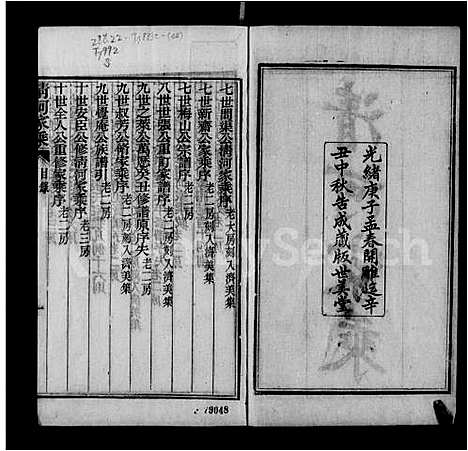 光緒庚子孟春開雕迄辛
丑中秋告成藏版世美堂
七世間渠公清河家乘序 老大房刻入濟美集
七世新齋公家乘序 老二房刻入濟美集
七世梅山公家譜序 老二房
八世世張公重訂家乘序 老二房
九世之彙公萬曆癸丑修譜原序失 老二房
九世叔芳公增修家乘序 老二房刻入濟美集
九世覺庵公族譜引 老二房
十世安臣公修清河家乘序 老三房
十世全人公重修家乘序 老二房
清河家乘
目錄
79048